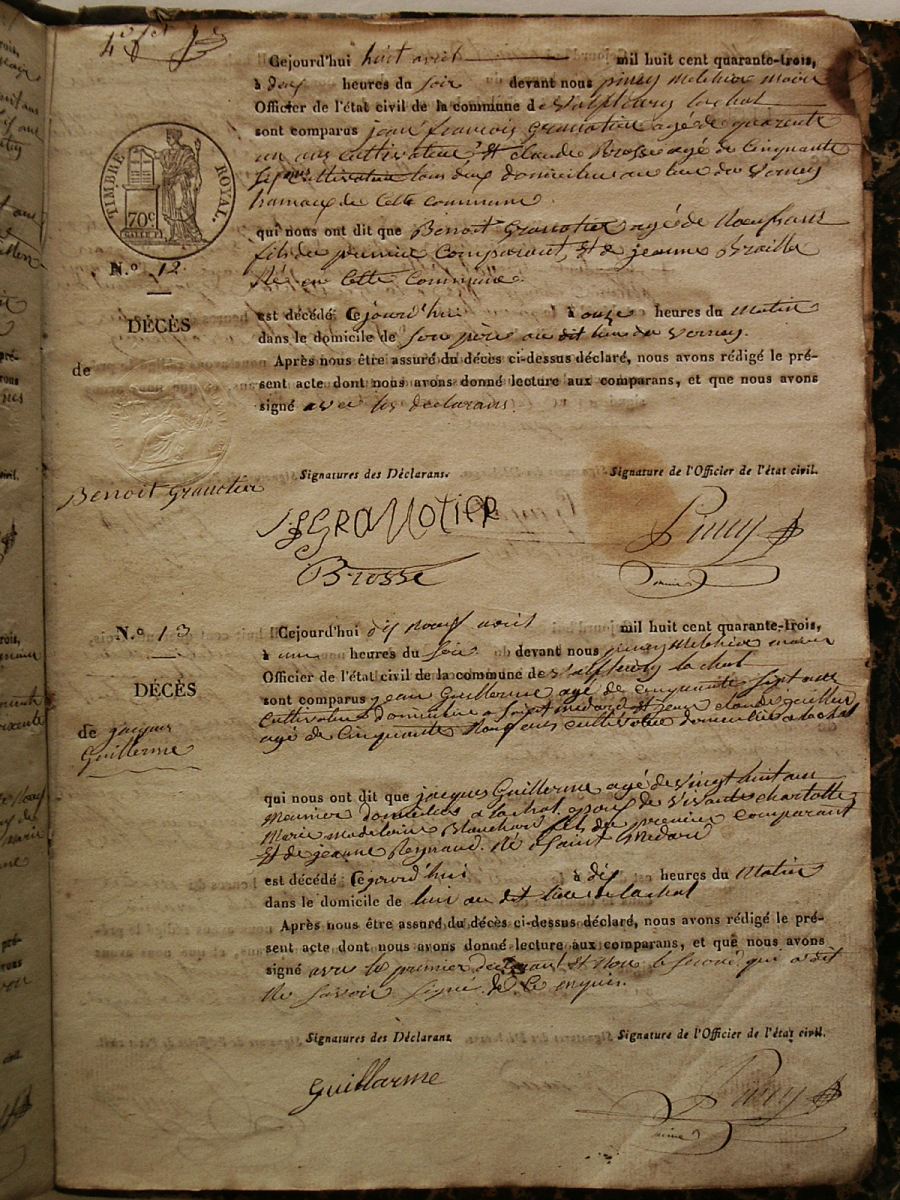 TIMBRE ROYAL
70c
N.° 12
DÉCÈS
de
Benoit Granotier
Cejourd'hui huit avril mil huit cent quarante-trois,
à deux heures du soir devant nous piney Melchior maire
Officier de l'état civil de la commune de
sont comparus jean francois Granotier agé de quarente
un ans cultivateur, Et claude Brosse agé de cinquante
cultivateur tous deux domiciliés au lieu du Verney
hameau de cette commune
qui nous ont dit que Benoit Granotier agé de neuf ans
fils du premier comparant, Et de jeanne
Né en cette commune
est décédé Cejourd'hui à onze heures du Matin
dans le domicile de son père au dit lieu du Verney.
Après nous être assuré du décès ci-dessus déclaré, nous avons rédigé le pré-
sent acte dont nous avons donné lecture aux comparans, et que nous avons
signé avec les declarans.
Signatures des Déclarans. Signature de l'Officier de l'état civil.
Granotier
Brosse
Piney
maire
N.° 13
DÉCÈS
de jacques
Guillerme
Cejourd'hui dix neuf avril mil huit cent quarante-trois,
à une heures du Soir devant nous piney Melchior maire
Officier de l'état civil de la commune de la chal
sont comparus jean Guillerme agé de cinquante sept ans
cultivateur domicilié a Saint Medard Et jean claude guillerme
agé de cinquante neuf ans cultivateur domicilié a la chal
qui nous ont dit que jacques Guillerme agé de vingt huit ans
Meunier domicilié a la chal epoux de vivante charlotte
Marie madelaine Blanchard fils du premier comparant
Et de jeanne Reynaud. Né a Saint Medard
est décédé Cejourd'hui à dix heures du Matin
dans le domicile de lui au dit lieu de la chal
Après nous être assuré du décès ci-dessus déclaré, nous avons rédigé le pré-
sent acte dont nous avons donné lecture aux comparans, et que nous avons
signé avec le premier declarant Et Non le second qui a dit
Ne savoir signé de ce enquis.
Signatures des Déclarans Signature de l'Officier de l'état civil.
Guillarme
Piney
maire